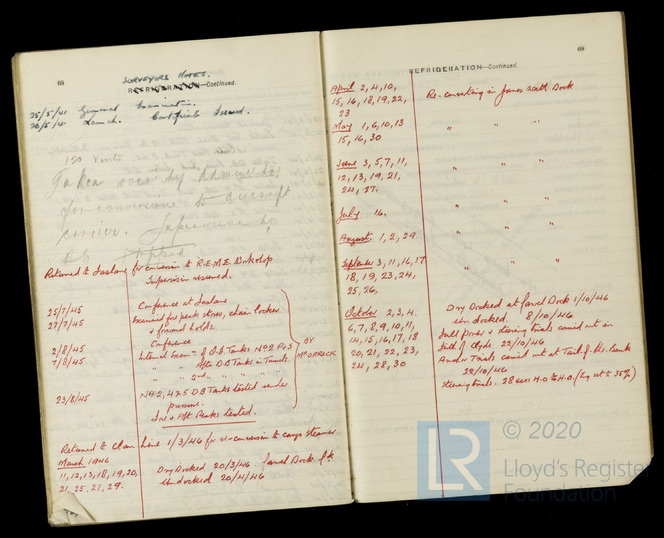 68
SURVEYORS NOTES.
REFRIGERATION—Continued.
25/5/41 General Examination.
26/5/41 Launch. Certificate Issued.
120 Visits
Taken over by Admiralty
for conversion to aircraft
carrier. Supervision by
stopped
Returned to for conversion to R.E.M.E. Workshop
Supervision resumed.
25/7/45 Conference at
27/7/45 Examined fore peak stores, chain locker
& forward holds.
2/8/45 Conference
7/8/45 Internal Exam - of D.B. Tanks No 2 P&S
" " After D.B. Tanks in Tunnels.
" " 2nd " " " "
BY
23/8/45 No 2, 4 & 5 DB Tanks tested under
pressure.
Fore & Aft Peaks tested.
Returned to Clan Line 1/3/46 for re-conversion to cargo steamer.
March 1946
11, 12, 13, 18, 19, 20, Dry Docked 20/3/46.
21, 25, 27, 29. Undocked 20/4/46
69
REFRIGERATION—Continued.
April 2, 4, 10, Re-converting in James Watt Dock
15, 16, 18, 19, 22,
23
May 1, 6, 10, 13 " " "
15, 16, 30
June 3, 5, 7, 11, " " "
12, 13, 19, 21,
24, 27.
July 16. " " "
August 1, 2, 29 " " "
September 3, 11, 16, 17 " " "
18, 19, 23, 24,
25, 26,
October 2, 3, 4. Dry Docked at Dock 1/10/46
6, 7, 8, 9, 10, 11, Undocked. 8/10/46
14, 15, 16, 17, 18 Full power & steering trials carried out in
20, 21, 22, 23, Firth of Clyde 22/10/46
24, 28, 30 Anchor Trials carried out at Tail of the Bank
22/10/46
Steering trials. 28 secs H.O to H.O
LR
© 2020
Lloyd's Register
Foundation